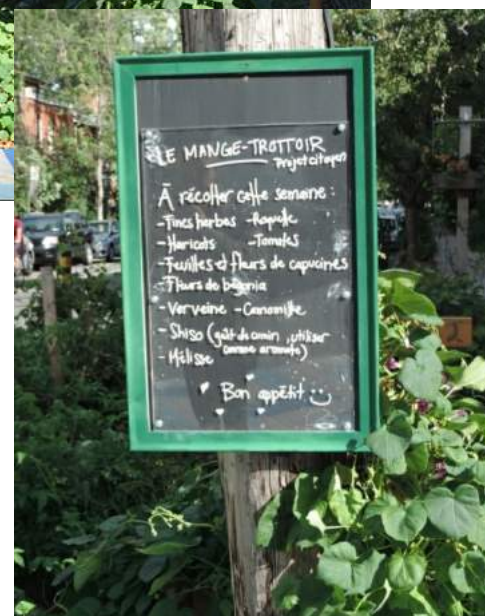 LE MANGE-TROTTOIR
Projet citoyen
À récolter cette semaine :
- Fines herbes - Roquette
- Haricots - Tomates
- Feuilles et fleurs de capucines
- Fleurs de bégonia
- Verveine - Camomille
- Shiso (goût de cumin, utiliser
comme aromate)
- Mélisse
Bon appétit